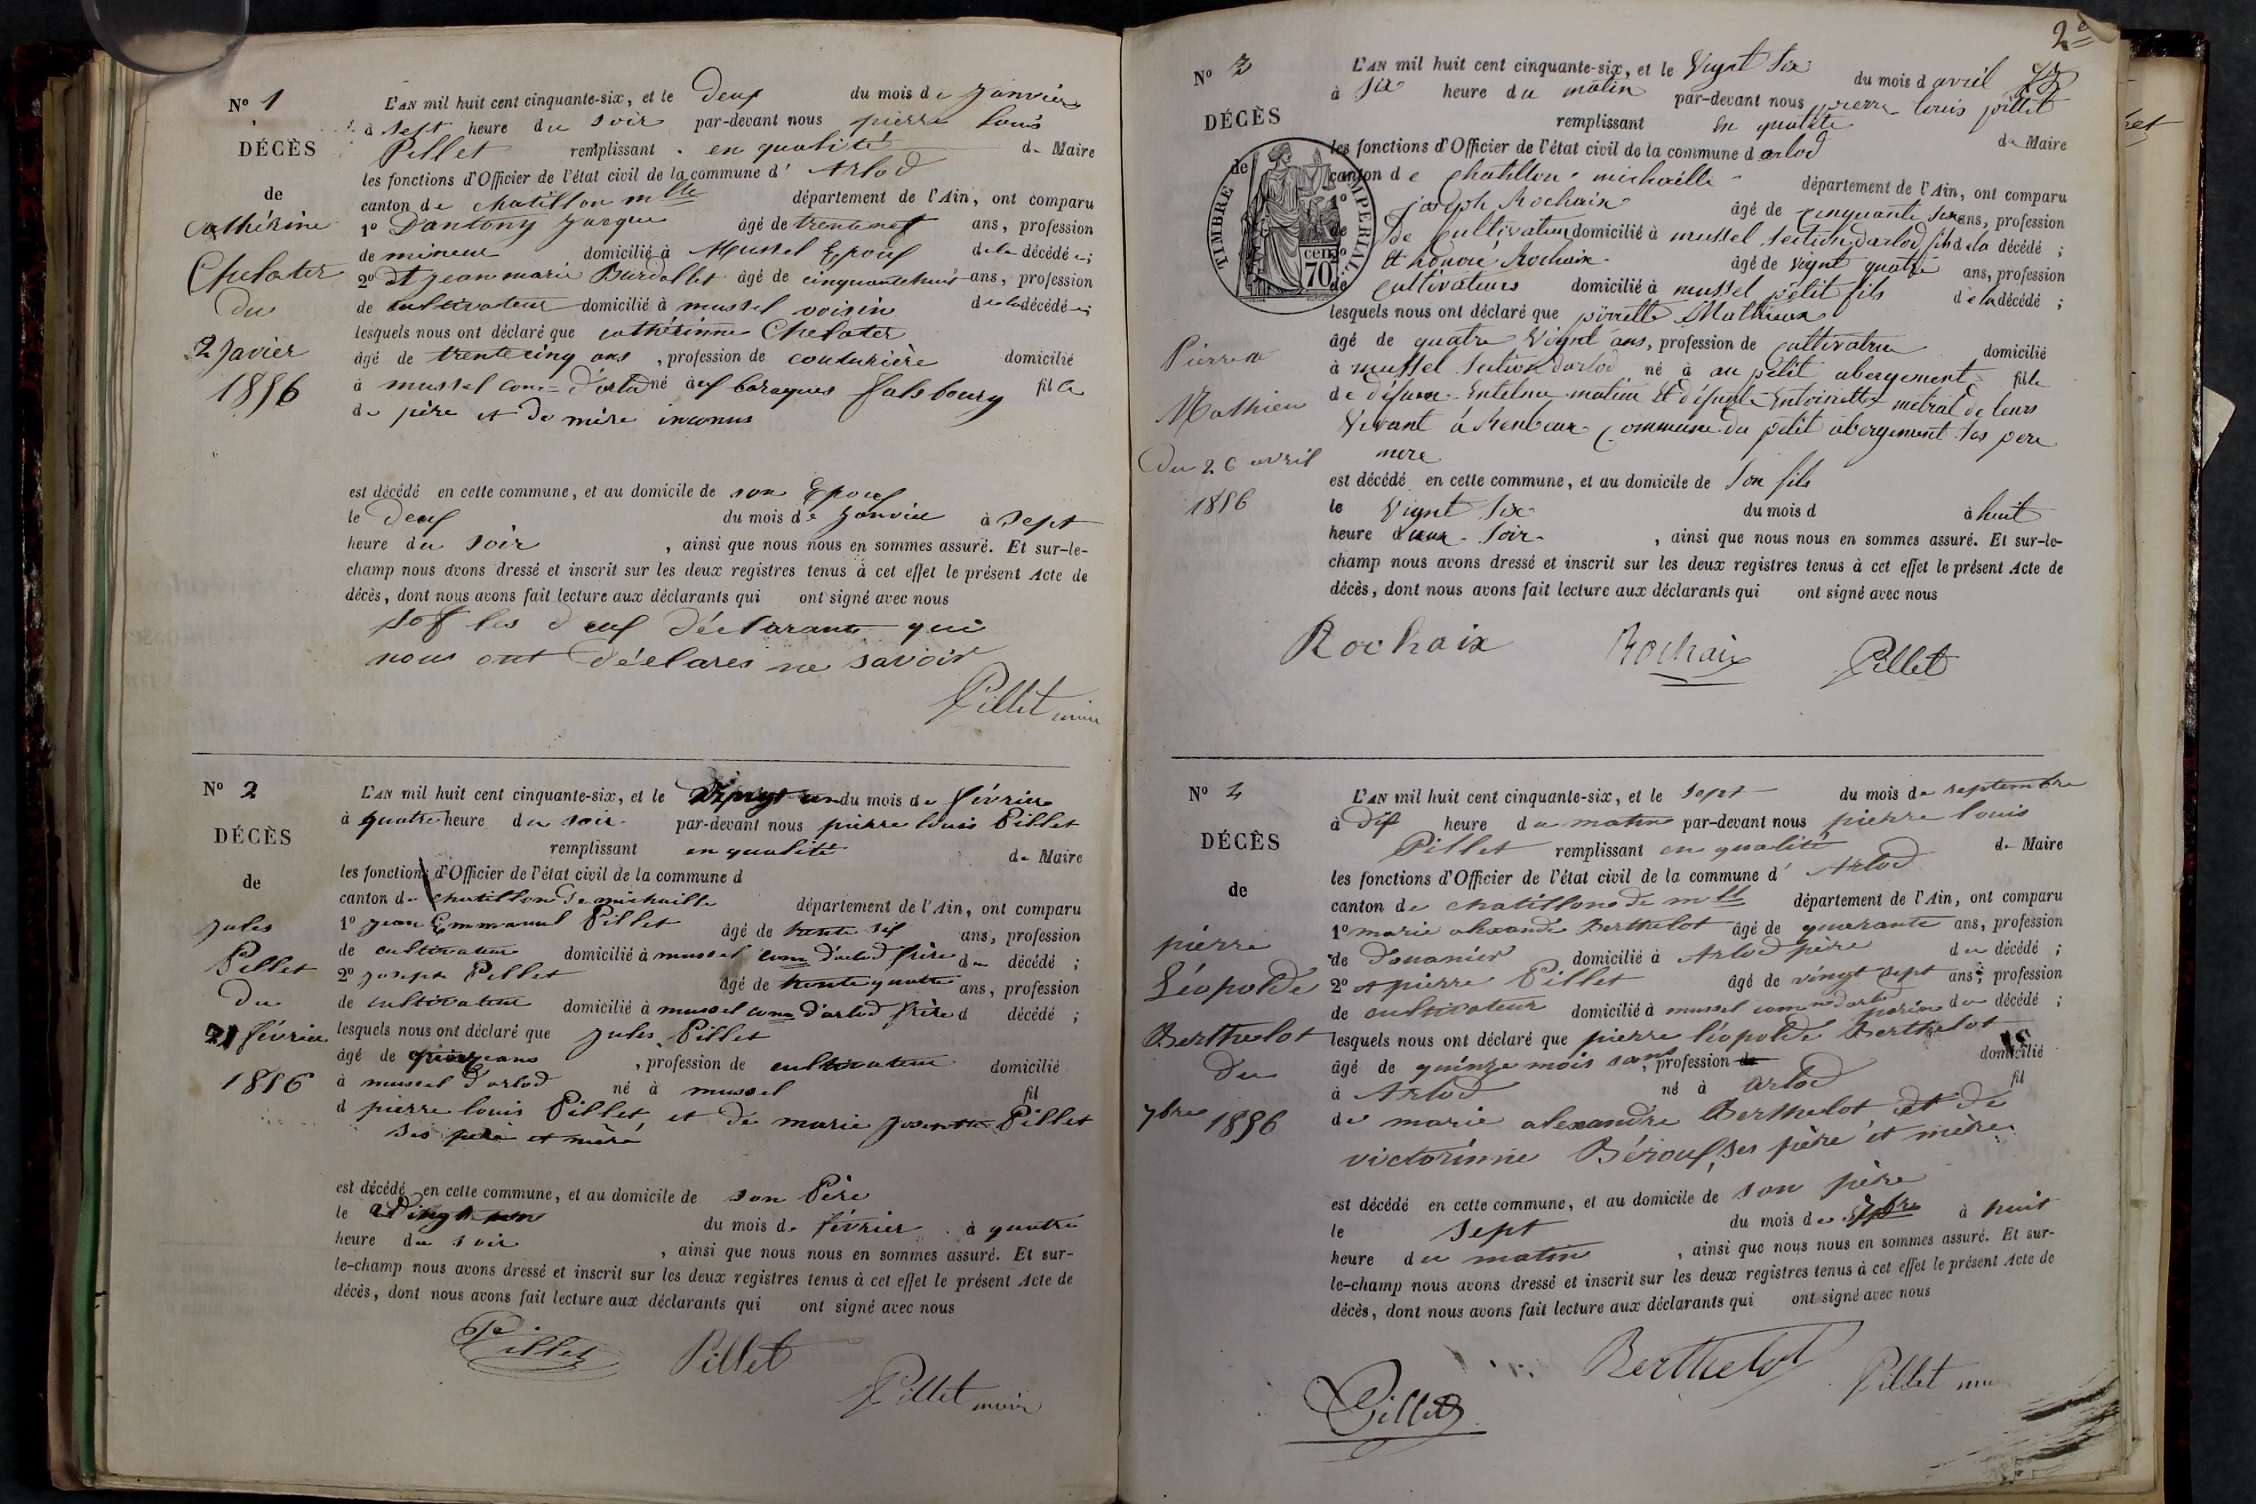 N° 1
DÉCÈS
de
Cathérine
Chelater
Du
2 Javier
1856
L'AN mil huit cent cinquante-six, et le Deux du mois de Janvier
à Sept heure du soir par-devant nous pierre louis
Pillet remplissant en qualité de Maire
les fonctions d'Officier de l'état civil de la commune d' Arlod
canton de chatillon mlle département de l'Ain, ont comparu
1° Dantony Jacque âgé de trenteneuf ans, profession
de mineur domicilié à Mussel Epoux de la décédée ;
2° et jean marie Burdallet âgé de cinquantehuit ans, profession
de cultivateur domicilié à mussel voisin de la décédée ;
lesquels nous ont déclaré que cathérinne Chelater
âgé de trente cinq ans , profession de couturière domicilié
à mussel com= d'arlod né aux baraques falsbourg fille
de père et de mère inconus
est décédé en cette commune, et au domicile de son Epoux
le Deux du mois de Janvier à Sept
heure du soir , ainsi que nous nous en sommes assuré. Et sur-le-
champ nous avons dressé et inscrit sur les deux registres tenus à cet effet le présent Acte de
décès, dont nous avons fait lecture aux déclarants qui ont signé avec nous
sof les deux déclarants qui
nous ont déclarés ne savoir
Pillet maire
N° 2
DÉCÈS
de
Jules
Pillet
Du
21 février
1856
L'AN mil huit cent cinquante-six, et le vingt un du mois de février
à quatre heure du soir par-devant nous pierre louis Pillet
remplissant en qualité de Maire
les fonctions d'Officier de l'état civil de la commune d
canton de chatillon de michaille département de l'Ain, ont comparu
1° jean Emmanuel Pillet âgé de trente six ans, profession
de cultivateur domicilié à mussel com d'arlod frère du décédé ;
2° joseph Pillet âgé de trente quatre ans, profession
de cultivateur domicilié à mussel com d'arlod frère d décédé ;
lesquels nous ont déclaré que jules Pillet
âgé de ans , profession de cultivateur domicilié
à mussel d'arlod né à mussel fil
d pierre louis Pillet et de marie Pillet
ses père et mère
est décédé en cette commune, et au domicile de son Père
le vingt un du mois de février à quatre
heure du soir , ainsi que nous nous en sommes assuré. Et sur-
le-champ nous avons dressé et inscrit sur les deux registres tenus à cet effet le présent Acte de
décès, dont nous avons fait lecture aux déclarants qui ont signé avec nous
Pillet Pillet
Pillet maire
2e
N° 3
DÉCÈS
de
TIMBRE IMPERIAL
70 cen
Pierrette
Mathieu
Du 26 avril
1856
L'AN mil huit cent cinquante-six, et le Vignt Six du mois d avril
à Six heure du matin par-devant nous pierre louis pillet
remplissant en qualité de Maire
les fonctions d'Officier de l'état civil de la commune d arlod
canton de Chatillon michaille département de l'Ain, ont comparu
1° joseph Rochaix âgé de cinquante ans, profession
de de Cultivateur domicilié à mussel section d'arlod fils de la décédé ;
2° Et honoré Rochaix âgé de vignt quatre ans, profession
de cultivateurs domicilié à mussel petit fils de la décédé ;
lesquels nous ont déclaré que pierrette Mathieux
âgé de quatre Vignt ans, profession de Cultivatrice domicilié
à mussel section d'arlod né à au petit abergement fille
de défunt matieu Et défunte Entoinette metral de leurs
Vivant à commune du petit abergement ses pere
mere
est décédé en cette commune, et au domicile de Son fils
le Vignt Six du mois d à huit
heure d soir , ainsi que nous nous en sommes assuré. Et sur-le-
champ nous avons dressé et inscrit sur les deux registres tenus à cet effet le présent Acte de
décès, dont nous avons fait lecture aux déclarants qui ont signé avec nous
Rochaix Rochaix Pillet
N° 4
DÉCÈS
de
pierre
Léopolde
Berthelot
Du
7bre 1856
L'AN mil huit cent cinquante-six, et le Sept du mois de septembre
à dix heure du matin par-devant nous pierre louis
Pillet remplissant en qualité de Maire
les fonctions d'Officier de l'état civil de la commune d' Arlod
canton de chatillon de mlle département de l'Ain, ont comparu
1° marie alexandre Berthelot âgé de quarante ans, profession
de Douanier domicilié à Arlod père du décédé ;
2° et pierre Pillet âgé de vingt sept ans, profession
de cultivateur domicilié à mussel com d'arlod parin du décédé ;
lesquels nous ont déclaré que pierre léopolde Berthelot
âgé de quinze mois sans , profession de domicilié
à Arlod né à arlod fil
de marie alexandre Berthelot et de
victorinne Béroux, ses père et mère
est décédé en cette commune, et au domicile de son père
le sept du mois de 7bre à huit
heure du matin , ainsi que nous nous en sommes assuré. Et sur-
le-champ nous avons dressé et inscrit sur les deux registres tenus à cet effet le présent Acte de
décès, dont nous avons fait lecture aux déclarants qui ont signé avec nous
Pillet Berthelot Pillet